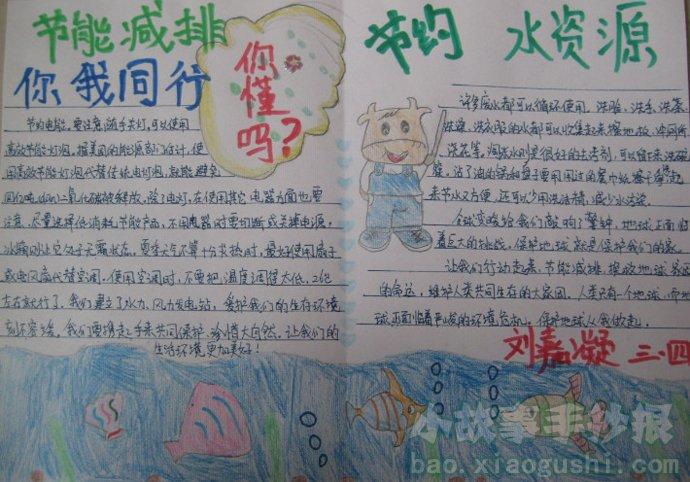 节能减排
你我同行
你
懂
吗?
节约 水资源
节约电能,要注意随手关灯,可以使用
高效节能灯泡,据美国的能源部门估计,使
用高效节能灯泡代替传统电灯泡,就能避免
四亿吨 二氧化碳被释放。除了电灯,在使用其它电器方面也要
注意,尽量选择低消耗节能产品,不用电器时要切断或关掉电源。
冰箱 让它处于无霜状态。夏季天气不算十分炎热时,最好使用扇子
或电风扇代替空调,使用空调时,不要把温度调得太低,26℃
左右就行了。我们建立了水力、风力发电站,爱护我们的生存环境
刻不容缓。我们要携起手来共同保护、珍惜大自然,让我们的
生活环境更加美好!
许多废水都可以循环使用。洗脸、洗手、洗菜
洗澡、洗衣服的水都可以收集起来擦地板、冲厕所
洗花等,淘米水则是很好的去污剂,可以留下来洗碗
筷,沾了油的锅和盘子要用用过的餐巾纸擦干净,洗起
来节水又方便,还可以少用洗洁精,减少水污染。
全球变暖给我们敲响了警钟,地球正面临
着巨大的挑战。保护地球,就是保护我们的家。
让我们行动起来,节能减排,拯救地球家园
的命运,维护人类共同生存的大家园。人类只有一个地球,而地
球正面临着严峻的环境危机,保护地球从我做起。
刘嘉凝 三.四
小故事手抄报
bao.xiaogushi.com